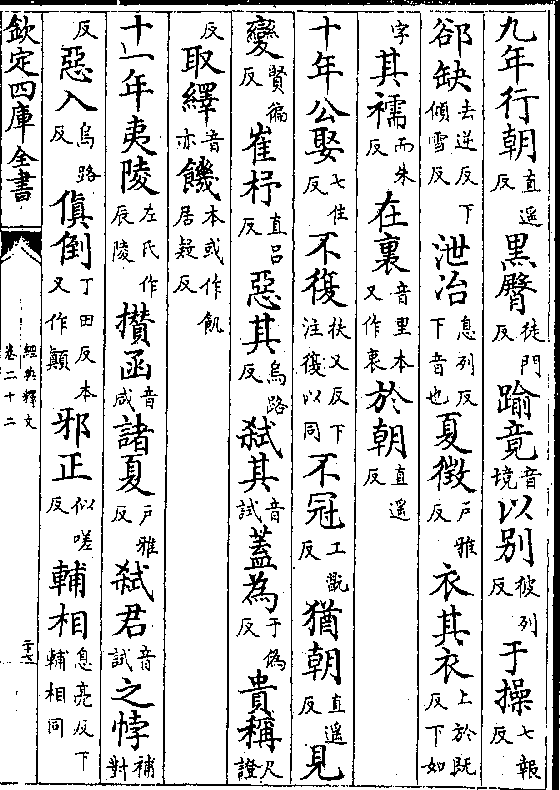 九年行朝直遥反黑臀徒門反踰竟音境以别彼列反于操七報反
郤缺去逆反下傾雪反泄冶息列反下音也夏徵戸雅反衣其衣上於既反下如
字其襦而朱反在裏音里本又作衷於朝直遥反
十年公娶七住反不復扶又反下注復以同不冠工亂反猶朝直遥反見
變賢徧反崔杼直吕反惡其烏路反弑其音試蓋為于偽反貴稱尺證
反取繹音亦饑本或作飢居疑反
十一年夷陵左氏作辰陵攢函音咸諸夏戸雅反弑君音試之悖補對
反惡入烏路反傎倒丁田反本又作顛邪正似嗟反輔相息亮反下輔相同
欽定四庫全書
經典釋文
卷二十二